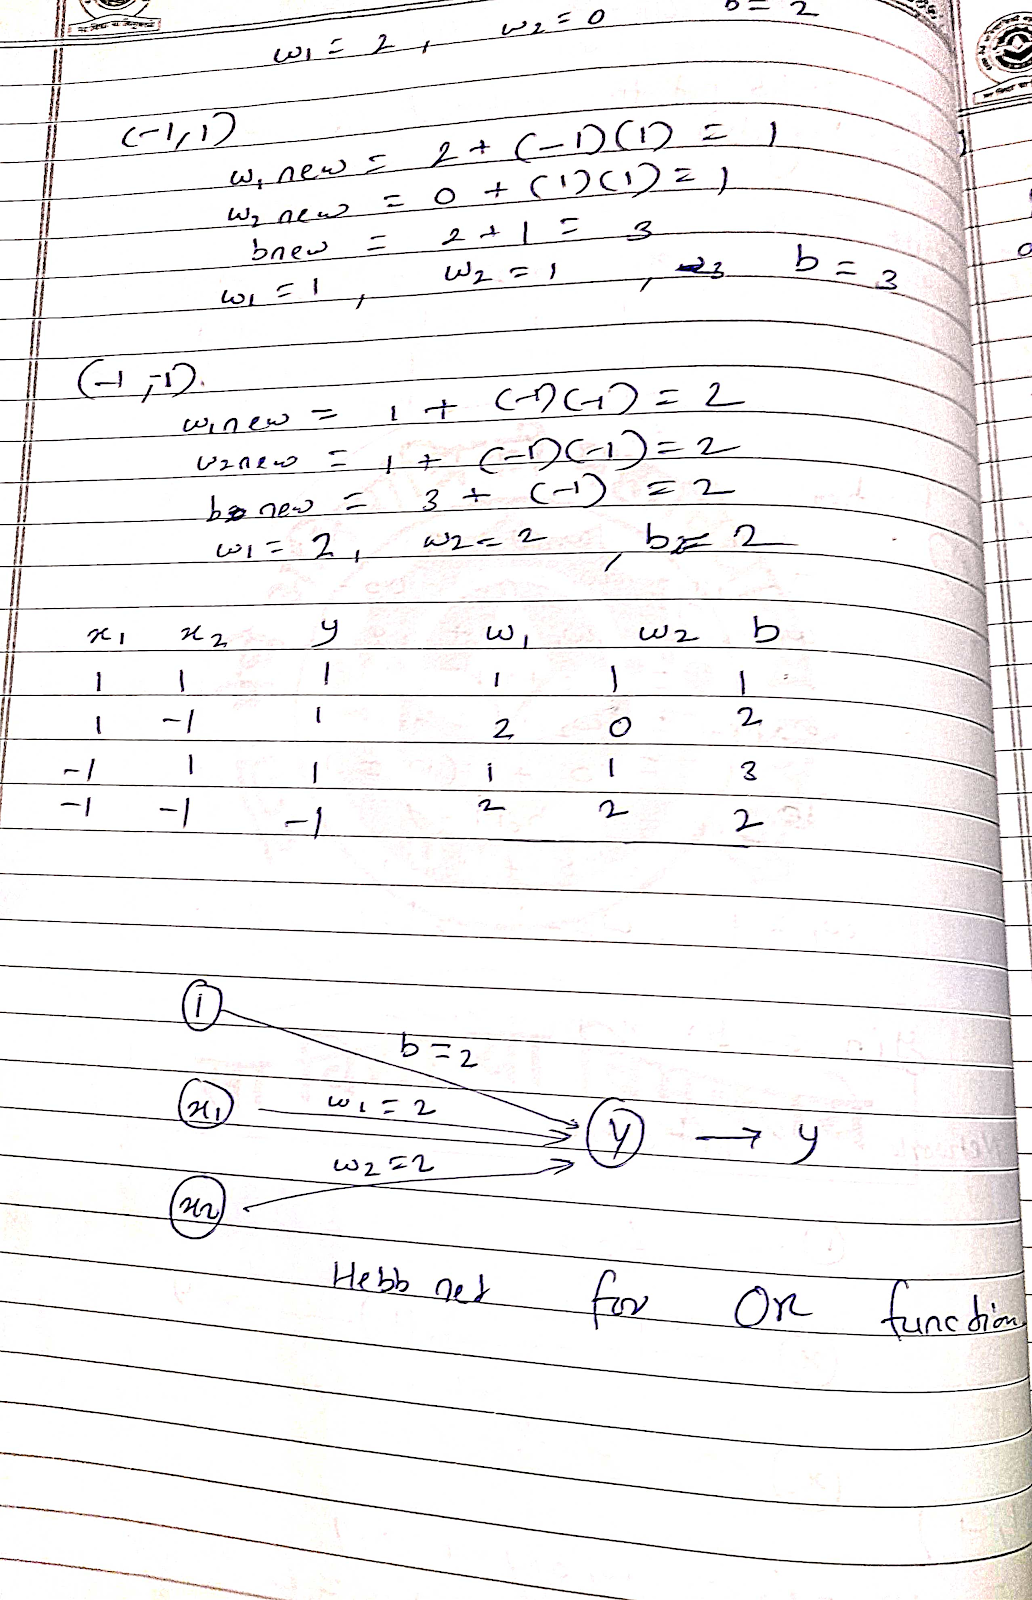 w1 = 2, w2 = 0 b = 2
(-1,1)
w1 new = 2 + (-1)(1) = 1
w2 new = 0 + (1)(1) = 1
bnew = 2 + 1 = 3
w1 = 1, w2 = 1, b = 3
(-1,-1).
w1new = 1 + (-1)(-1) = 2
w2new = 1 + (-1)(-1) = 2
b new = 3 + (-1) = 2
w1 = 2, w2 = 2, b = 2
x1 x2 y w1 w2 b
1 1 1 1 1 1
1 -1 1 2 0 2
-1 1 1 1 1 3
-1 -1 -1 2 2 2
1
b = 2
x1 w1 = 2
Y → y
w2 = 2
x2
Hebb net for OR function